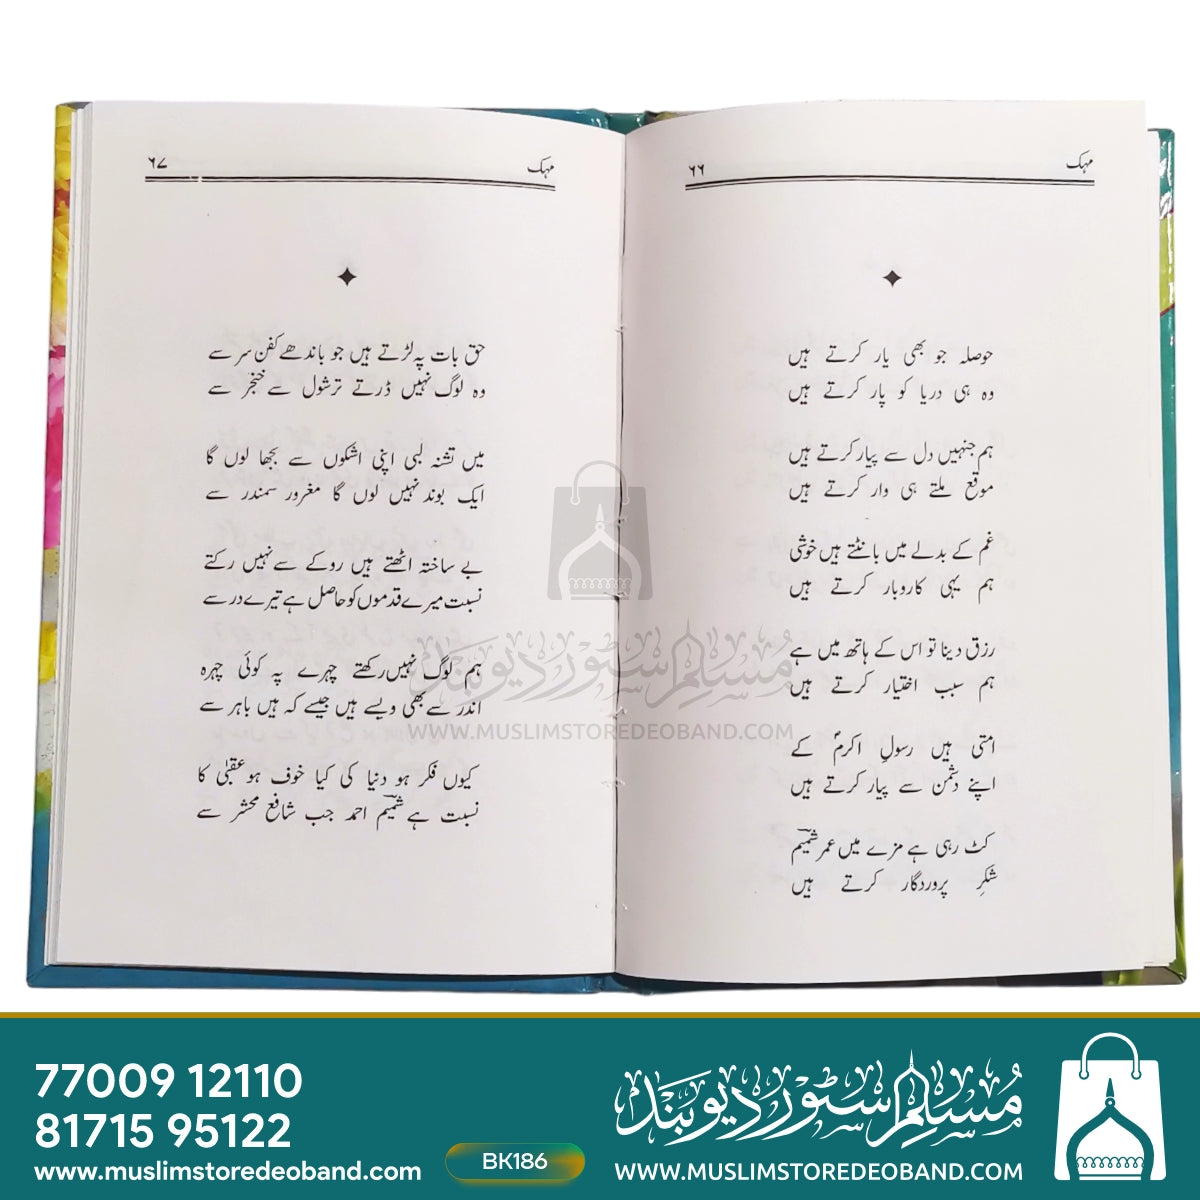 مہک
۶۶
حوصلہ جو بھی یار کرتے ہیں
وہ ہی دریا کو پار کرتے ہیں
ہم جنہیں دل سے پیار کرتے ہیں
موقع ملتے ہی وار کرتے ہیں
غم کے بدلے میں بانٹتے ہیں خوشی
ہم یہی کاروبار کرتے ہیں
رزق دینا تو اس کے ہاتھ میں ہے
ہم سبب اختیار کرتے ہیں
امتی ہیں رسولِ اکرمؐ کے
اپنے دشمن سے پیار کرتے ہیں
کٹ رہی ہے مزے میں عمر شمیمؔ
شکرِ پروردگار کرتے ہیں
مہک
۶۷
حق بات پہ لڑتے ہیں جو باندھے کفن سر سے
وہ لوگ نہیں ڈرتے ترشول سے خنجر سے
میں تشنہ لبی اپنی اشکوں سے بجھا لوں گا
ایک بوند نہیں لوں گا مغرور سمندر سے
بے ساختہ اٹھتے ہیں روکے سے نہیں رکتے
نسبت میرے قدموں کو حاصل ہے تیرے در سے
ہم لوگ نہیں رکھتے چہرے پہ کوئی چہرہ
اندر سے بھی ویسے ہیں جیسے کہ ہیں باہر سے
کیوں فکر ہو دنیا کی کیا خوف ہو عقبیٰ کا
نسبت ہے شمیمؔ احمد جب شافع محشر سے
مسلم سٹور دیوبند
WWW.MUSLIMSTOREDEOBAND.COM
77009 12110
81715 95122
www.muslimstoredeoband.com
BK186
مسلم سٹور دیوبند
WWW.MUSLIMSTOREDEOBAND.COM